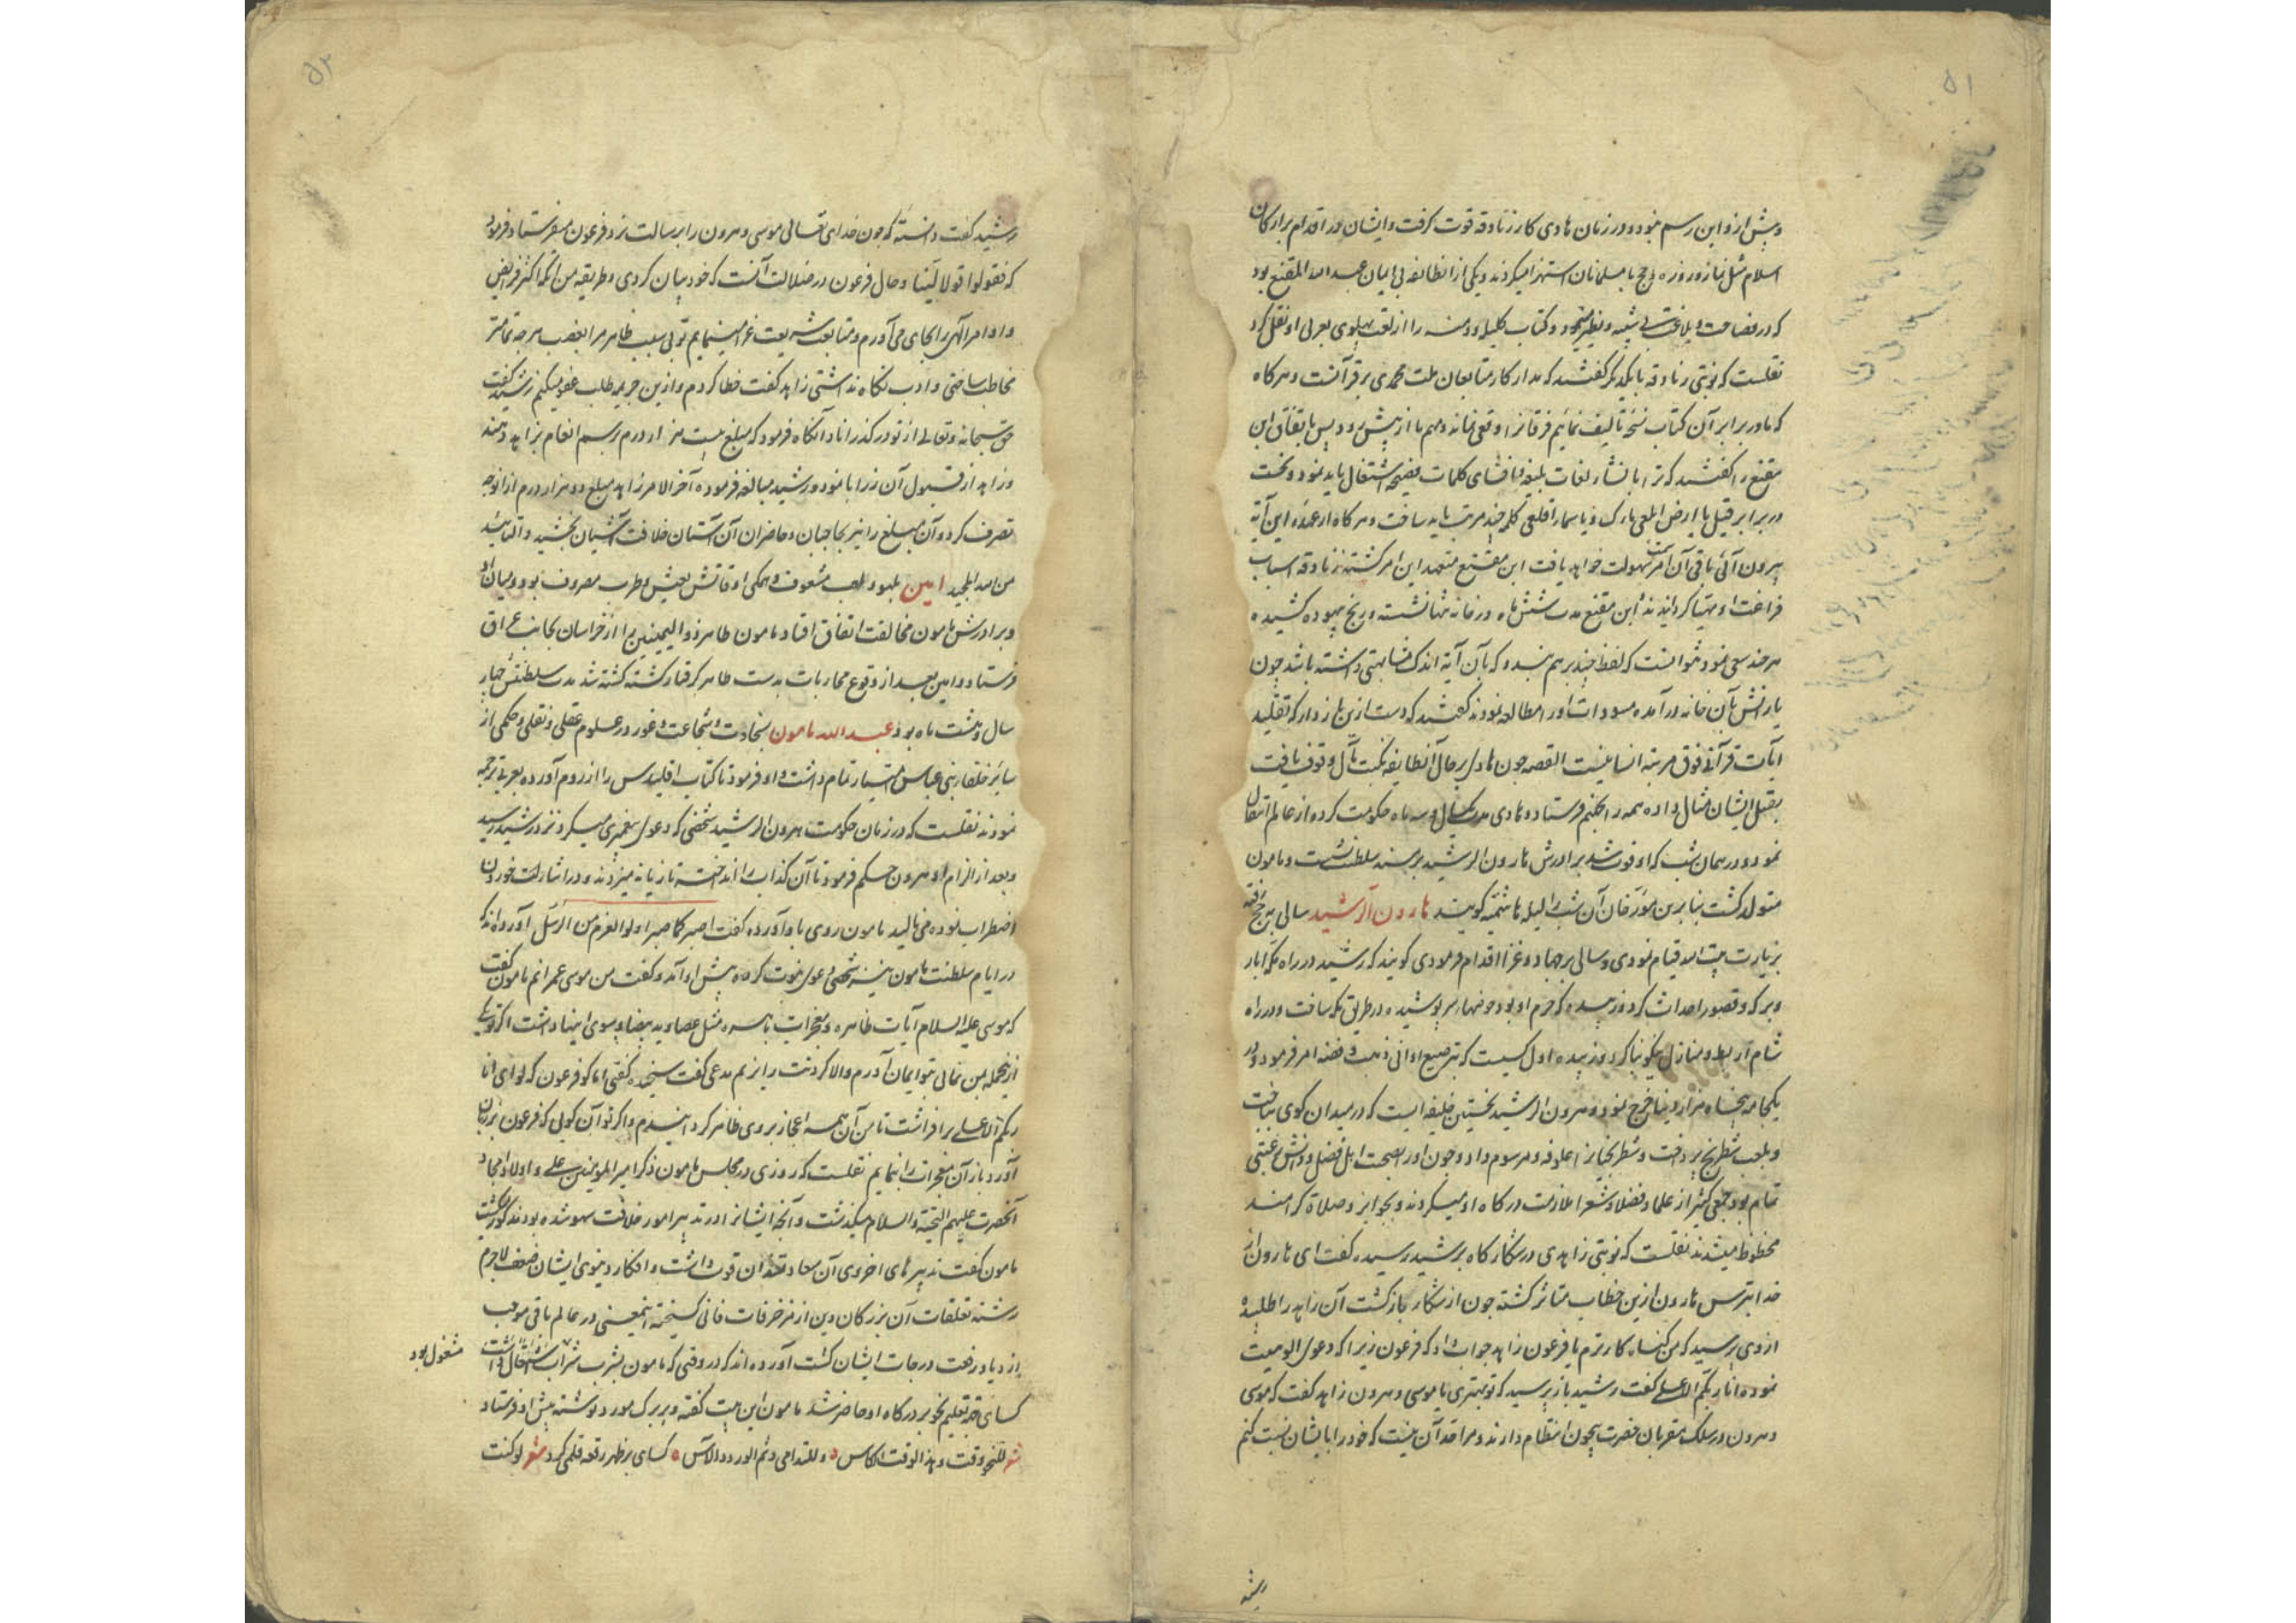 ۵۱
و پیش ازو این رسم نبود و در زمان هادی کار زنادقه قوت گرفت و ایشان در اقدام بر ارکان
اسلام مثل نماز و روزه و حج با مسلمانان استهزا میکردند و یکی از انطایفه بی ایمان عبد الله المقنع بود
که در فصاحت و بلاغت بی شبیه و نظیر و کتاب کلیله و دمنه را از لغت پهلوی بعربی او نقل کرد
نقلست که نوبتی زنادقه با یکدیگر گفتند که مدار کار متابعان ملت محمدی بر قرآنست و هرگاه
که ما در برابر آن کتاب نسخه تالیف نمائیم فرقانرا وقعی نماند و مهم ما از پیش رود پس باتفاق ابن
مقنع را گفتند که ترا بانشاء لغات بلیغه و افشای کلمات فصیحه اشتغال باید نمود و نخست
در برابر قیل یا ارض ابلعی ماءک و یا سماء اقلعی کلمه چند مرتب باید ساخت و هرگاه از عهده این آیه
بیرون آئی باقی آن سهولت خواهد یافت ابن مقنع متعهد این امر گشته زنادقه اسباب
فراغت او مهیا گردانیدند ابن مقنع مدت شش ماه در خانه تنها نشسته و رنج بیهوده کشیده
هرچند سعی نمود نتوانست که لفظی چند بر هم بندد که بآن آیه اندک مشابهتی داشته باشد چون
یارانش بآن خانه درآمده مسودات او را مطالعه نمودند گفتند که دست ازین باز دار که تقلید
آیات قرآنی فوق مرتبه انسان نیست القصه چون هادی بر حال آنطایفه وقوف یافت
بقتل ایشان مثال داده همه را بجهنم فرستاد و هادی مدت یکسال و سه ماه حکومت کرده از عالم انتقال
نمود و در همان شب که او فوت شد برادرش هارون الرشید بر مسند سلطنت نشست و مامون
متولد گشت بنابرین مورخان آن شب را لیله هاشمیه گویند هارون الرشید سالی به حج رفته
بزیارت بیت الله قیام نمودی و سالی بر جهاد و غزا اقدام فرمودی گویند که رشید در راه مکه آبار
و برک و قصور احداث کرد و زبیده که حرم او بود حوضهاء سرپوشیده در طریق مکه ساخت و در راه
شام اربطه و منازل نیکو بنا کرد و زبیده اول کسیست که بترصیع اوانی ذهب و فضه امر فرمود و در
یکجامه پنجاه هزار دینار خرج نمود و هرون الرشید نخستین خلیفه ایست که در میدان گوی باخت
و بلعب شطرنج پرداخت و شطرنجیانرا علوفه و مرسوم داد و چون او را بصحبت اهل فضل و دانش رغبتی
تمام بود جمعی کثیر از علما و فضلا و شعرا ملازمت درگاه او میکردند و بجوایز و صلات گرامند
محظوظ میشدند نقلست که نوبتی زاهدی در شکارگاه برشید رسیده گفت ای هارون از
خدا بترس هارون ازین خطاب متاثر گشته چون از شکار بازگشت آن زاهد را طلبیده
از وی پرسید که من گناه کارترم یا فرعون زاهد جواب داد که فرعون زیرا که دعوی الوهیت
نموده انا ربکم الاعلی گفت رشید باز پرسید که تو بهتری یا موسی و هرون زاهد گفت که موسی
و هرون در سلک مقربان حضرت بیچون انتظام دارند و مرا حد آن نیست که خود را بایشان نسبت کنم
رشید
۵۲
رشید گفت دانسته که چون خدای تعالی موسی و هرون را برسالت نزد فرعون میفرستاد فرمود
که فقولا قولا لینا و حال فرعون در ضلالت آنست که خود بیان کردی و طریقه من آنکه اکثر فرایض
و اوامر الهی را بجای می آورم و متابعت شریعت غرا مینمایم تو بی سبب ظاهر مرا بغضب هرچه تمامتر
مخاطب ساختی و ادب نگاه نداشتی زاهد گفت خطا کردم و ازین جریمه طلب عفو میکنم رشید گفت
حق سبحانه و تعالی از تو درگذراناد آنگاه فرمود که مبلغ بیست هزار درم برسم انعام بزاهد دهند
و زاهد از قبول آن زر ابا نمود و رشید مبالغه فرموده آخر الامر زاهد مبلغ دو هزار درم از آنوجه
تصرف کرد و آن مبلغ را نیز بحاجبان و حاضران آن آستان خلافت آشیان بخشید و التائید
من الله المجید امین بلهو و لعب مشعوف و همگی اوقاتش بعیش و طرب مصروف بود و میان او
و برادرش مامون مخالفت اتفاق افتاد مامون طاهر ذوالیمینین را از خراسان بجانب عراق
فرستاد و امین بعد از وقوع محاربات بدست طاهر گرفتار گشته کشته شد مدت سلطنتش چهار
سال و هشت ماه بود عبد الله مامون بسخاوت و شجاعت و غور در علوم عقلی و نقلی و حکمی از
سایر خلفاء بنی عباس امتیاز تمام داشت و او فرمود تا کتاب اقلیدس را از روم آورده بعربی ترجمه
نمودند نقلست که در زمان حکومت هرون الرشید شخصی که دعوی پیغمبری میکرد نزد رشید رسید
و بعد از الزام او هرون حکم فرمود تا آن کذاب را انداخته تازیانه میزدند و در اثناء لت خوردن
اضطراب نموده می نالید مامون روی باو آورده گفت اصبر کما صبر اولوا العزم من الرسل آورده اند که
در ایام سلطنت مامون نیز شخصی دعوی نبوت کرده پیش او آمد و گفت من موسی عمرانم مامون گفت
که موسی علیه السلام آیات ظاهره و معجزات باهره مثل عصا و ید بیضا و سوی اینها داشت اگر تو یکی
از انجمله بمن نمائی بتو ایمان آورم والا گردنت را بزنم مدعی گفت سنجیده گفتی اما کو فرعون که لوای انا
ربکم الاعلی برافراشت تا من آن همه اعجاز بروی ظاهر گردانیدم و اگر تو آن گوئی که فرعون بر زبان
آورد باز آن معجزات را بنمایم نقلست که روزی در مجلس مامون ذکر امیر المومنین علی و اولاد امجاد
آنحضرت علیهم التحیة و السلام میگذشت و آنچه ایشانرا در تدبیر امور خلافت سهو شده بود مذکور میگشت
مامون گفت تدبیرهای اخروی آن سعادتمندان قوت داشت و افکار دنیوی ایشان ضعف لاجرم
رشته تعلقات آن بزرگان دین از مزخرفات فانی گسیخته اینمعنی در عالم باقی موجب
ازدیاد رفعت درجات ایشان گشت آورده اند که در وقتی که مامون بشرب شراب اشتغال داشت
مشغول بود
کسای جهة تعلیم نحو بر درگاه او حاضر شد مامون این بیت گفته و بر برگ مورد نوشته پیش او فرستاد
شعر للنحو وقت و هذا الوقت للکاس و للندامی و شم الورد و الآس کسای بر ظهر رقعه قلمی کرد شعر لو کنت